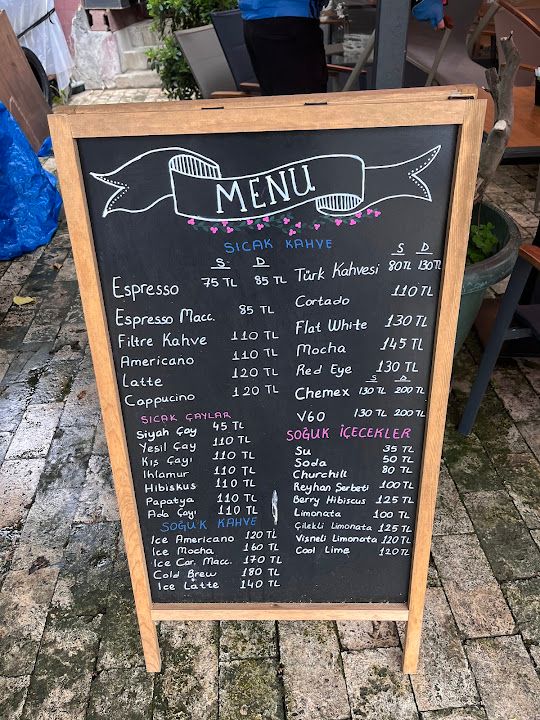 MENU
SICAK KAHVE
S D
Espresso 75 TL 85 TL
Espresso Macc. 85 TL
Filtre Kahve 110 TL
Americano 110 TL
Latte 120 TL
Cappucino 120 TL
SICAK ÇAYLAR
Siyah Çay 45 TL
Yeşil Çay 110 TL
Kış Çayı 110 TL
Ihlamur 110 TL
Hibiskus 110 TL
Papatya 110 TL
Ada Çayı 110 TL
SOĞUK KAHVE
Ice Americano 120 TL
Ice Mocha 160 TL
Ice Car. Macc. 170 TL
Cold Brew 180 TL
Ice Latte 140 TL
S D
Türk Kahvesi 80 TL 130 TL
Cortado 110 TL
Flat White 130 TL
Mocha 145 TL
Red Eye 130 TL
S D
Chemex 130 TL 200 TL
V60 130 TL 200 TL
SOĞUK İÇECEKLER
Su 35 TL
Soda 50 TL
Churchill 80 TL
Reyhan Şerbeti 100 TL
Berry Hibiscus 125 TL
Limonata 100 TL
Çilekli Limonata 125 TL
Visneli Limonata 120 TL
Cool Lime 120 TL